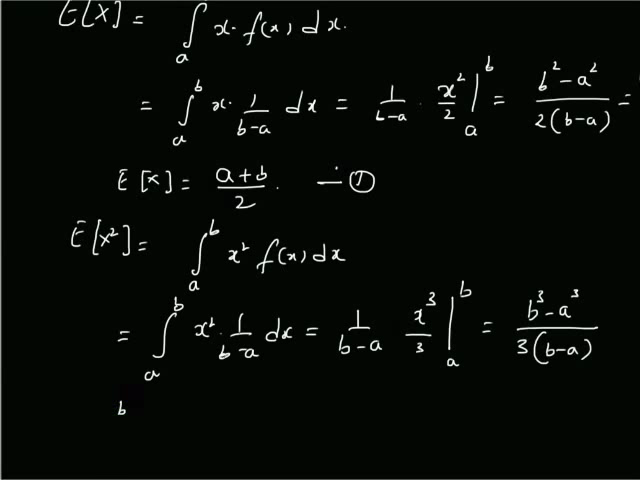 E[X] = ∫ₐ x · f(x) dx.
= ∫ₐᵇ x · 1/(b-a) dx = 1/(b-a) · x²/2 |ₐᵇ = (b² - a²)/(2(b-a)) =
E[X] = (a+b)/2 . — ①
E[X²] = ∫ₐᵇ x² f(x) dx
= ∫ₐᵇ x² · 1/(b-a) dx = 1/(b-a) x³/3 |ₐᵇ = (b³ - a³)/(3(b-a))
b